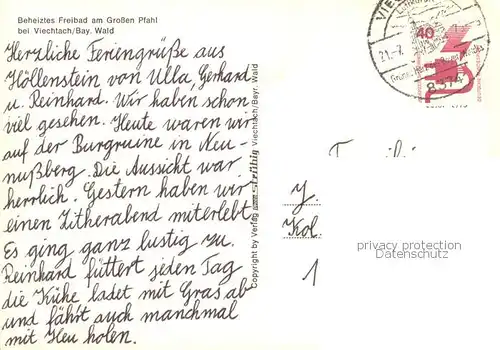 Beheiztes Freibad am Großen Pfahl
bei Viechtach/Bay. Wald
Herzliche Feriengrüße aus
Höllenstein von Ulla, Gerhard
u. Reinhard. Wir haben schon
viel gesehen. Heute waren wir
auf der Burgruine in Neu-
nußberg. Die Aussicht war
herrlich. Gestern haben wir
einen Zitherabend miterlebt
Es ging ganz lustig zu.
Reinhard füttert jeden Tag
die Kühe ladet mit Gras ab
und fährt auch manchmal
mit Heu holen.
Copyright by Verlag
Viechtach/Bayr. Wald
40
21.-7.
8374
J.
Kol.
1
privacy protection
Datenschutz